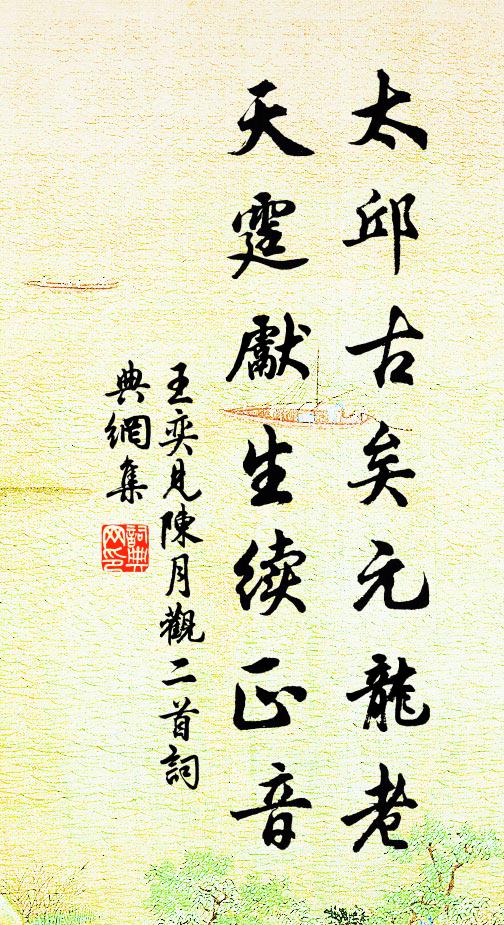 太邱古矣元龍老
天霆獻生續正音
王奕見陳月觀二首詞
典網集
詞典網印